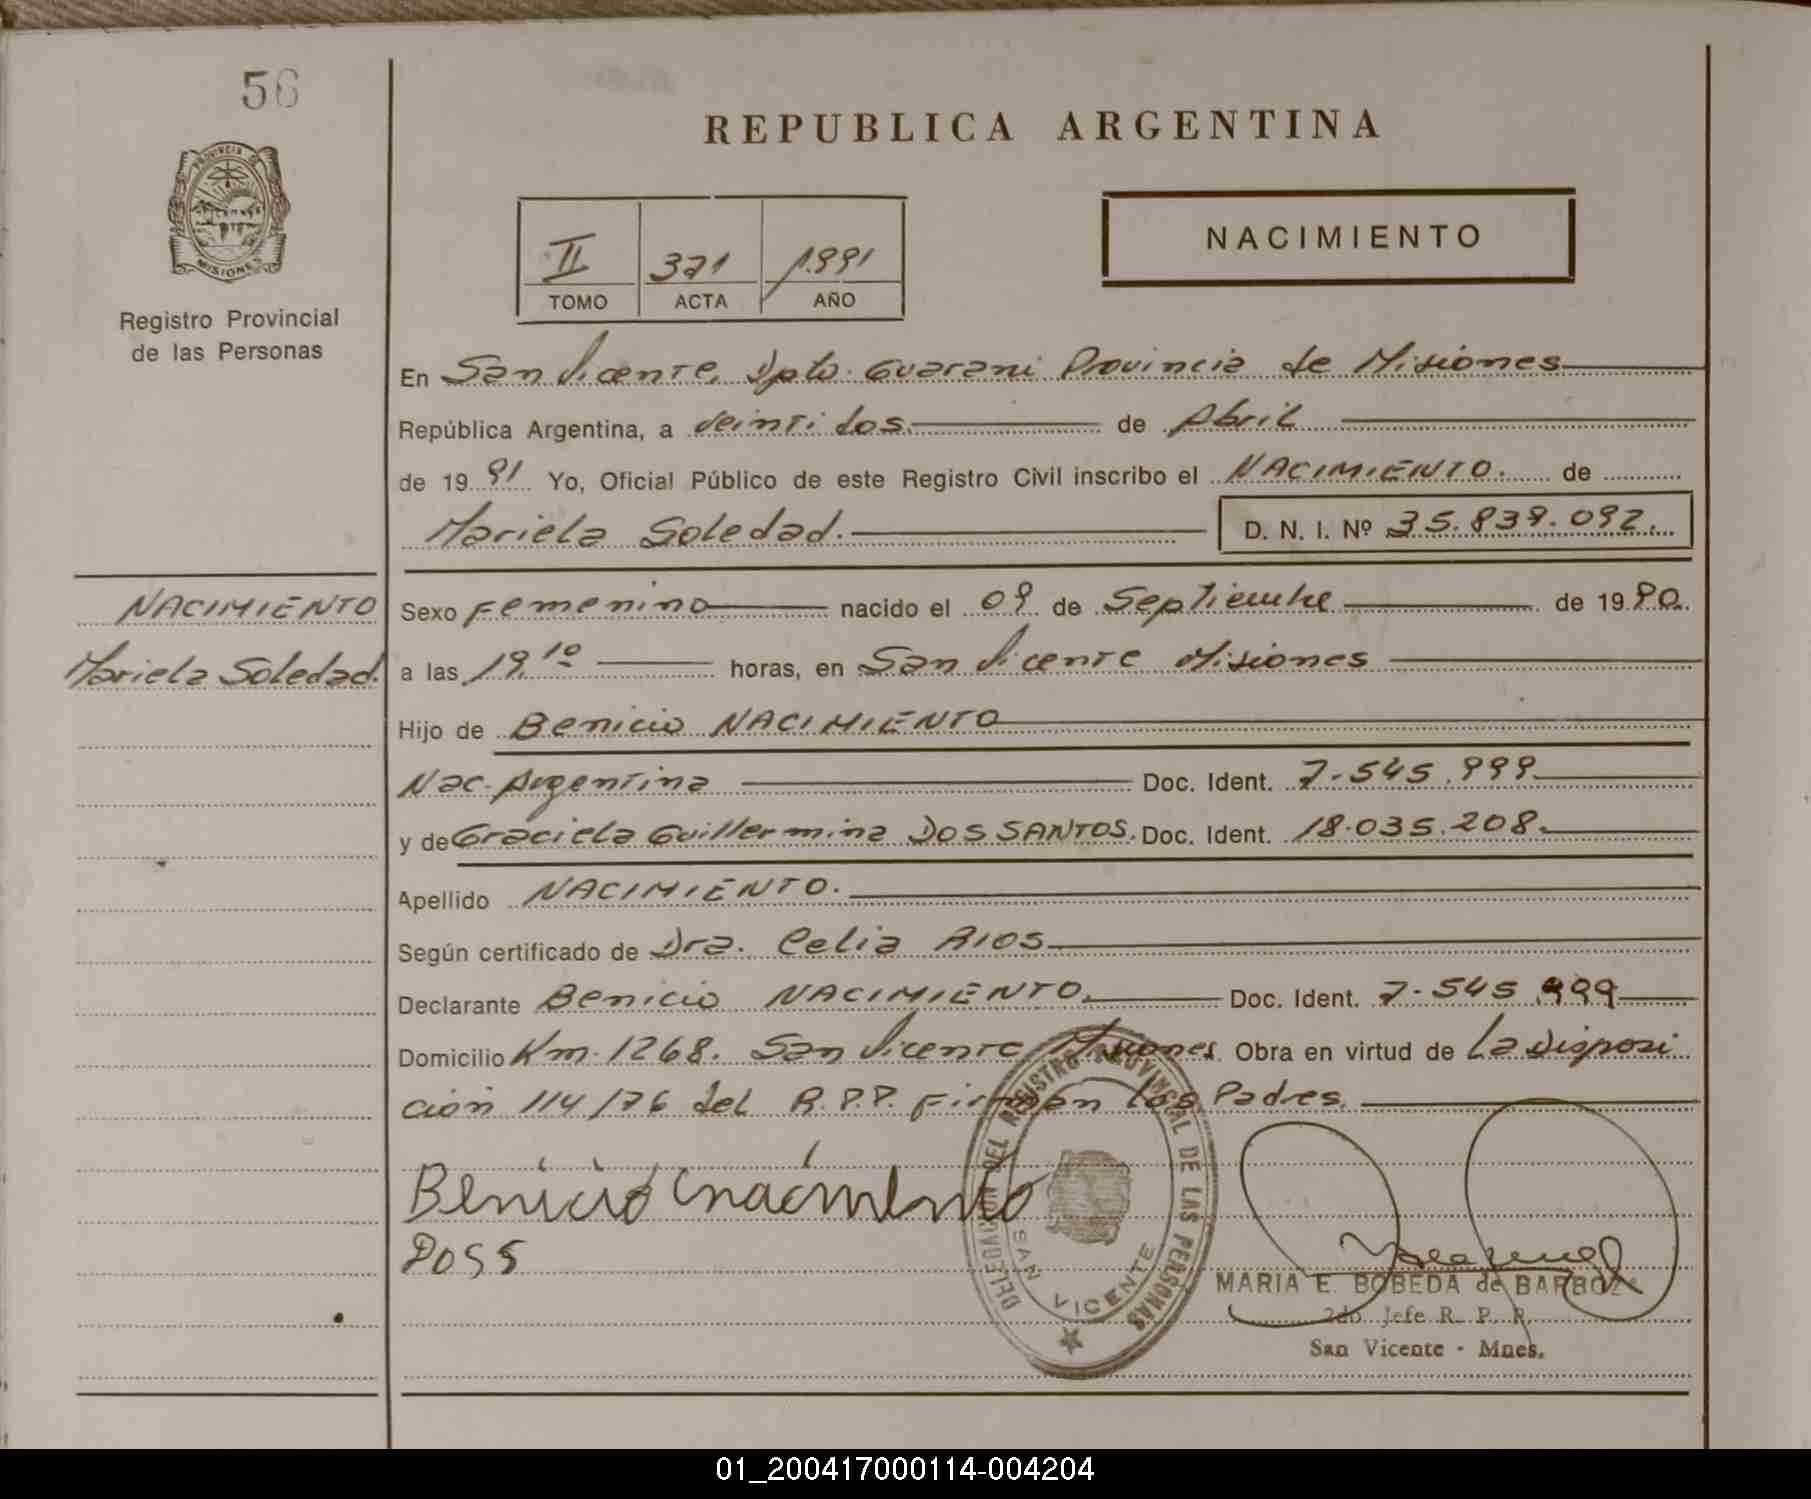 56
REPUBLICA ARGENTINA
PROVINCIA DE
MISIONES
Registro Provincial
de las Personas
II 371 1.991
TOMO ACTA AÑO
NACIMIENTO
En San Vicente, Dpto. Guarani Provincia de Misiones
República Argentina, a veinti dos. de Abril
de 1991 Yo, Oficial Público de este Registro Civil inscribo el NACIMIENTO. de
Mariela Soledad. D. N. I. Nº 35.837.092.
NACIMIENTO
Mariela Soledad.
Sexo Femenino nacido el 09 de Septiembre de 1990.
a las 19,10 horas, en San Vicente Misiones
Hijo de Benicio NACIMIENTO
Nac. Argentina Doc. Ident. 7.545.999
y de Graciela Guillermina DOS SANTOS. Doc. Ident. 18.035.208.
Apellido NACIMIENTO.
Según certificado de Dra. Celia RIOS
Declarante Benicio NACIMIENTO. Doc. Ident. 7.545.999
Domicilio Km. 1268. San Vicente Misiones Obra en virtud de La Disposi
ción 114/76 del R.P.P. Firman los Padres.
DELEGACION DEL REGISTRO PROVINCIAL DE LAS PERSONAS
SAN VICENTE
Benicio
DOSS
MARIA E. BOBEDA de BARBOZA
2do. Jefe R. P. P.
San Vicente - Mnes.
01_200417000114-004204